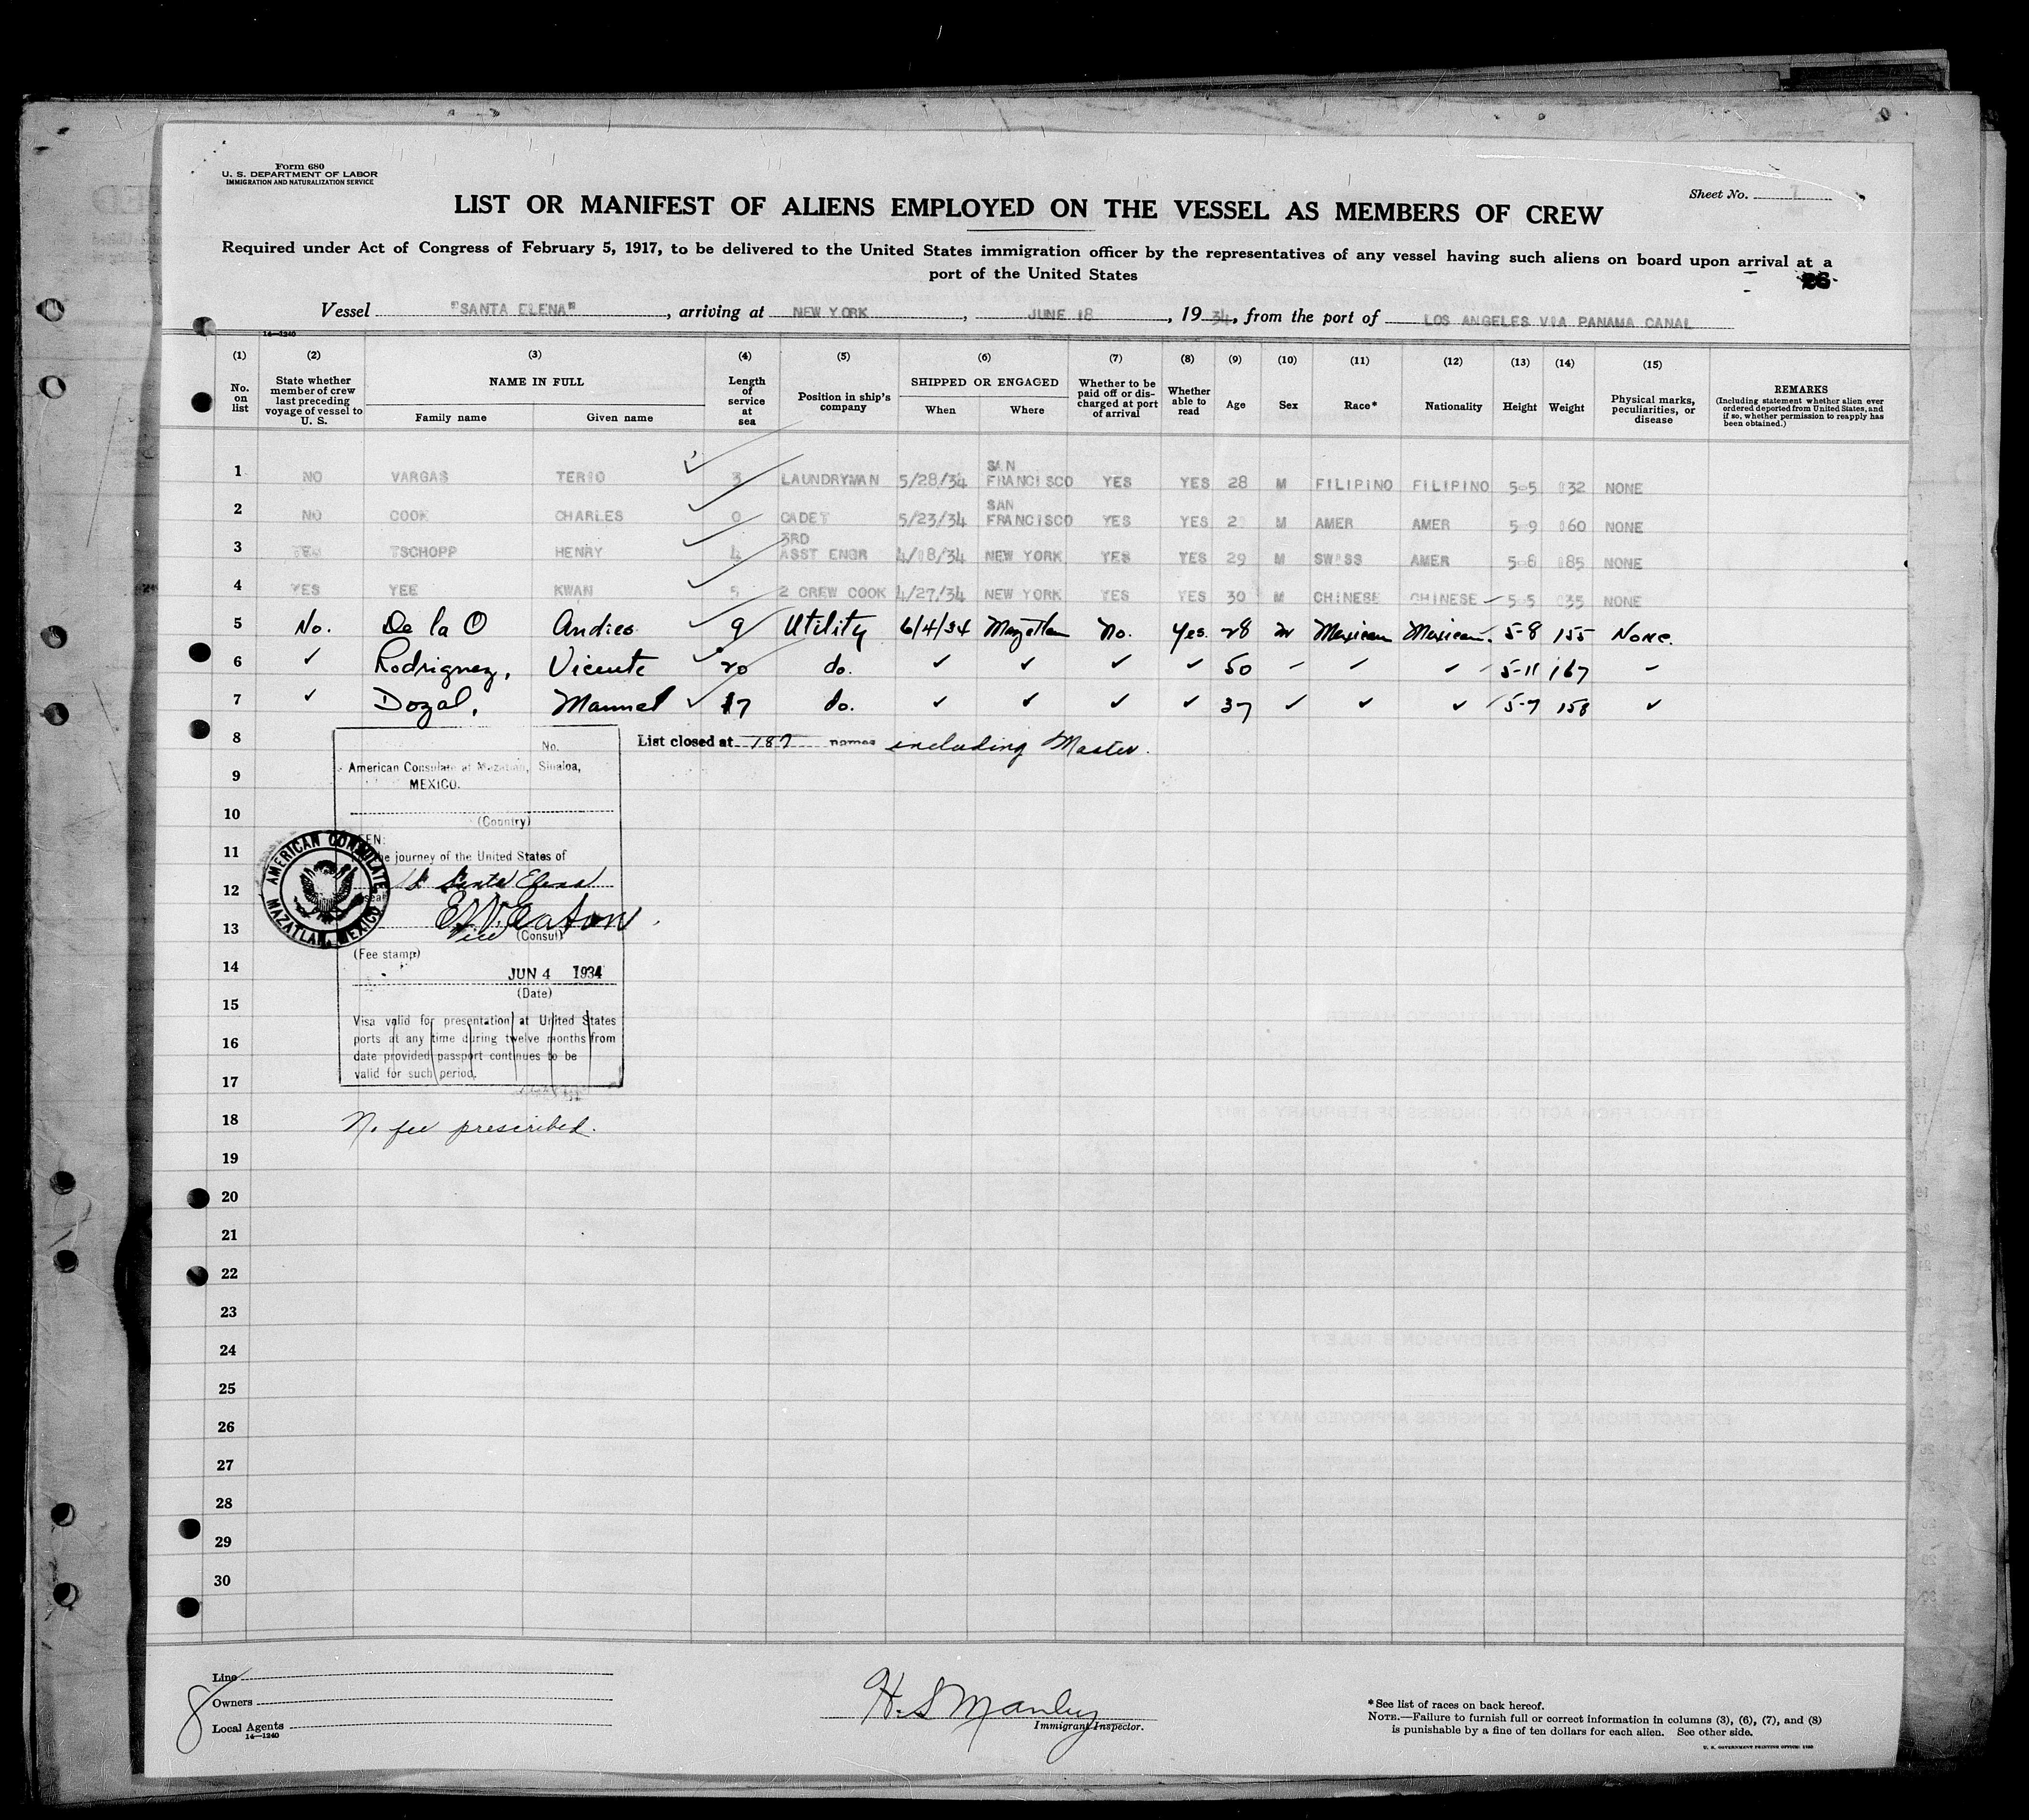 Form 680
U. S. DEPARTMENT OF LABOR
IMMIGRATION AND NATURALIZATION SERVICE
Sheet No. 7
LIST OR MANIFEST OF ALIENS EMPLOYED ON THE VESSEL AS MEMBERS OF CREW
Required under Act of Congress of February 5, 1917, to be delivered to the United States immigration officer by the representatives of any vessel having such aliens on board upon arrival at a
port of the United States
26
Vessel "SANTA ELENA", arriving at NEW YORK, JUNE 18, 1934, from the port of LOS ANGELES VIA PANAMA CANAL
14—1240
(1) (2) (3) (4) (5) (6) (7) (8) (9) (10) (11) (12) (13) (14) (15)
No. on list
State whether member of crew last preceding voyage of vessel to U. S.
NAME IN FULL
Family name
Given name
Length of service at sea
Position in ship's company
SHIPPED OR ENGAGED
When
Where
Whether to be paid off or discharged at port of arrival
Whether able to read
Age
Sex
Race*
Nationality
Height
Weight
Physical marks, peculiarities, or disease
REMARKS
(Including statement whether alien ever ordered deported from United States, and if so, whether permission to reapply has been obtained.)
1 NO VARGAS TERIO 3 LAUNDRYMAN 5/28/34 SAN FRANCISCO YES YES 28 M FILIPINO FILIPINO 5-5 132 NONE
2 NO COOK CHARLES 0 CADET 5/23/34 SAN FRANCISCO YES YES 2 M AMER AMER 5 9 160 NONE
3 YES TSCHOPP HENRY 4 3RD ASST ENGR 4/18/34 NEW YORK YES YES 29 M SWISS AMER 5-8 185 NONE
4 YES YEE KWAN 5 2 CREW COOK 4/27/34 NEW YORK YES YES 30 M CHINESE CHINESE 5-5 135 NONE
5 No. De la O Andies 9 Utility 6/4/34 Mazatlan No. Yes. 28 M Mexican Mexican. 5-8 155 None.
6 ✓ Rodriguez, Vicente ✓ 20 do. ✓ ✓ ✓ ✓ 50 ✓ ✓ ✓ 5-11 167 ✓
7 ✓ Dozal, Manuel ✓ 17 do. ✓ ✓ ✓ ✓ 37 ✓ ✓ ✓ 5-7 158 ✓
8 List closed at 187 names including Master.
9
10
11
12
13
14
15
16
17
18
19
20
21
22
23
24
25
26
27
28
29
30
No.
American Consulate at Mazatlan, Sinaloa,
MEXICO.
(Country)
SEEN:
the journey of the United States of
Santa Elena
E.W. Eaton
Vice (Consul)
(Fee stamp)
JUN 4 1934
(Date)
Visa valid for presentation at United States
ports at any time during twelve months from
date provided passport continues to be
valid for such period.
AMERICAN CONSULATE
MAZATLAN, MEXICO
No fee prescribed.
Line
Owners
Local Agents
14—1240
8
H. S Manley
Immigrant Inspector.
*See list of races on back hereof.
NOTE.—Failure to furnish full or correct information in columns (3), (6), (7), and (8)
is punishable by a fine of ten dollars for each alien. See other side.